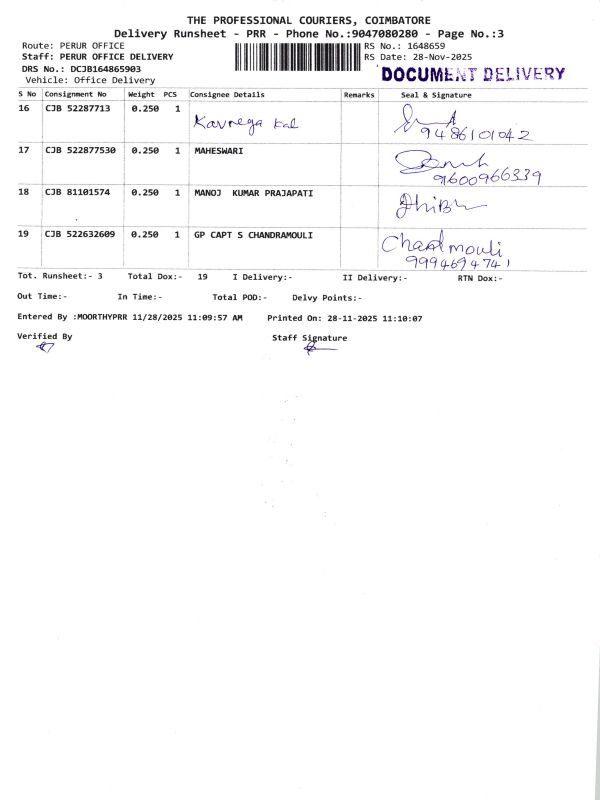 THE PROFESSIONAL COURIERS, COIMBATORE
Delivery Runsheet - PRR - Phone No.:9047080280 - Page No.:3
Route: PERUR OFFICE RS No.: 1648659
Staff: PERUR OFFICE DELIVERY RS Date: 28-Nov-2025
DRS No.: DCJB164865903
DOCUMENT DELIVERY
Vehicle: Office Delivery
S No Consignment No Weight PCS Consignee Details Remarks Seal & Signature
16 CJB 52287713 0.250 1
9486101042
17 CJB 522877530 0.250 1 MAHESWARI
9160096 6339
18 CJB 81101574 0.250 1 MANOJ KUMAR PRAJAPATI
19 CJB 522632609 0.250 1 GP CAPT S CHANDRAMOULI
9994694741
Tot. Runsheet:- 3 Total Dox:- 19 I Delivery:- II Delivery:- RTN Dox:-
Out Time:- In Time:- Total POD:- Delvy Points:-
Entered By :MOORTHYPRR 11/28/2025 11:09:57 AM Printed On: 28-11-2025 11:10:07
Verified By Staff Signature